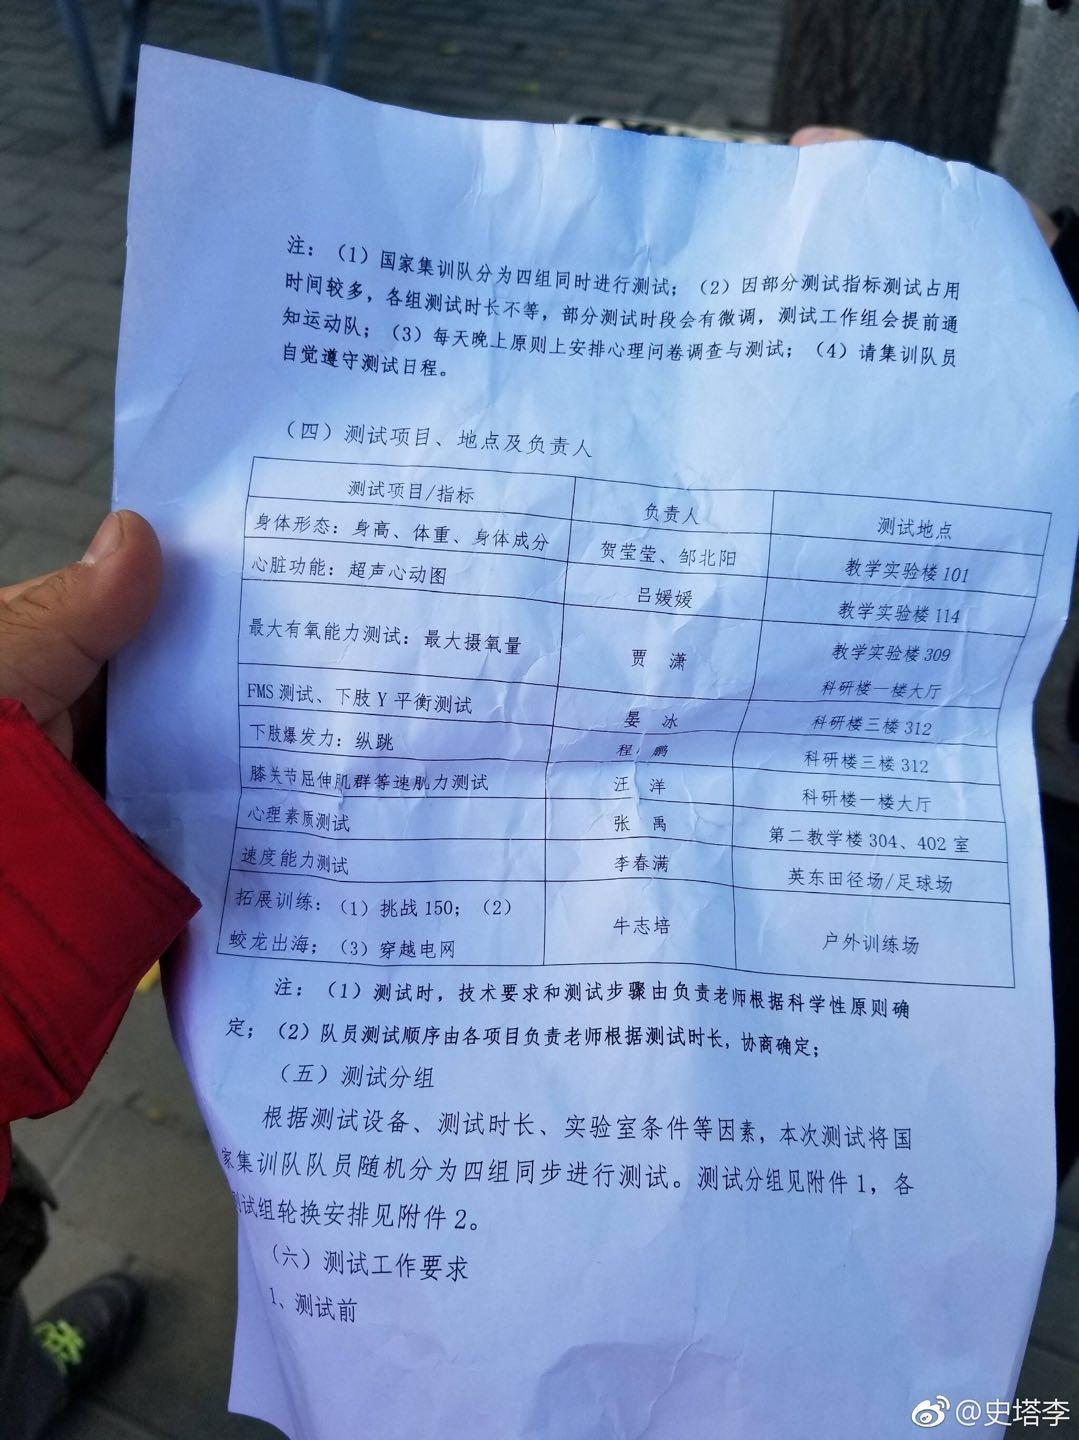 注：（1）国家集训队分为四组同时进行测试；（2）因部分测试指标测试占用
时间较多，各组测试时长不等，部分测试时段会有微调，测试工作组会提前通
知运动队；（3）每天晚上原则上安排心理问卷调查与测试；（4）请集训队员
自觉遵守测试日程。
（四）测试项目、地点及负责人
测试项目/指标 负责人 测试地点
身体形态：身高、体重、身体成分 贺莹莹、邹北阳 教学实验楼101
心脏功能：超声心动图 吕媛媛 教学实验楼114
最大有氧能力测试：最大摄氧量 贾 潇 教学实验楼309
科研楼一楼大厅
FMS测试、下肢Y平衡测试 晏 冰 科研楼三楼312
下肢爆发力：纵跳 程 鹏 科研楼三楼312
膝关节屈伸肌群等速肌力测试 汪 洋 科研楼一楼大厅
心理素质测试 张 禹 第二教学楼304、402室
速度能力测试 李春满 英东田径场/足球场
拓展训练：（1）挑战150；（2）
蛟龙出海；（3）穿越电网 牛志培 户外训练场
注：（1）测试时，技术要求和测试步骤由负责老师根据科学性原则确
定；（2）队员测试顺序由各项目负责老师根据测试时长，协商确定；
（五）测试分组
根据测试设备、测试时长、实验室条件等因素，本次测试将国
家集训队队员随机分为四组同步进行测试。测试分组见附件1，各
测试组轮换安排见附件2。
（六）测试工作要求
1、测试前
@史塔李